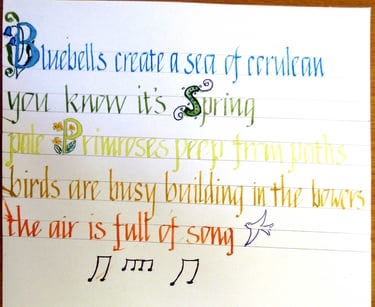 Bluebells create a sea of cerulean
you know it's Spring
pale Primroses peep from paths
birds are busy building in the bowers
the air is full of song